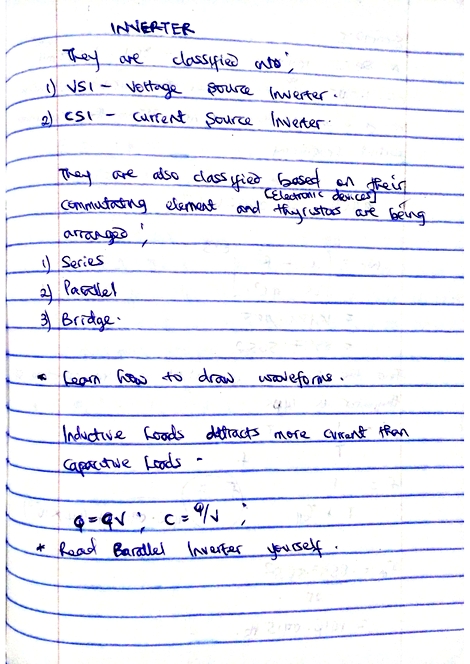 INVERTER
They are classified into;
1) VSI - Voltage Source Inverter.
2) CSI - Current Source Inverter.
They are also classified based on their
[Electronic devices]
commutating element and thyristors are being
arranged;
1) Series
2) Parallel
3) Bridge.
* Learn how to draw waveforms.
Inductive Loads attracts more current than
Capacitive Loads -
Q = QV ; C = Q/V ;
* Read Barallel Inverter yourself.